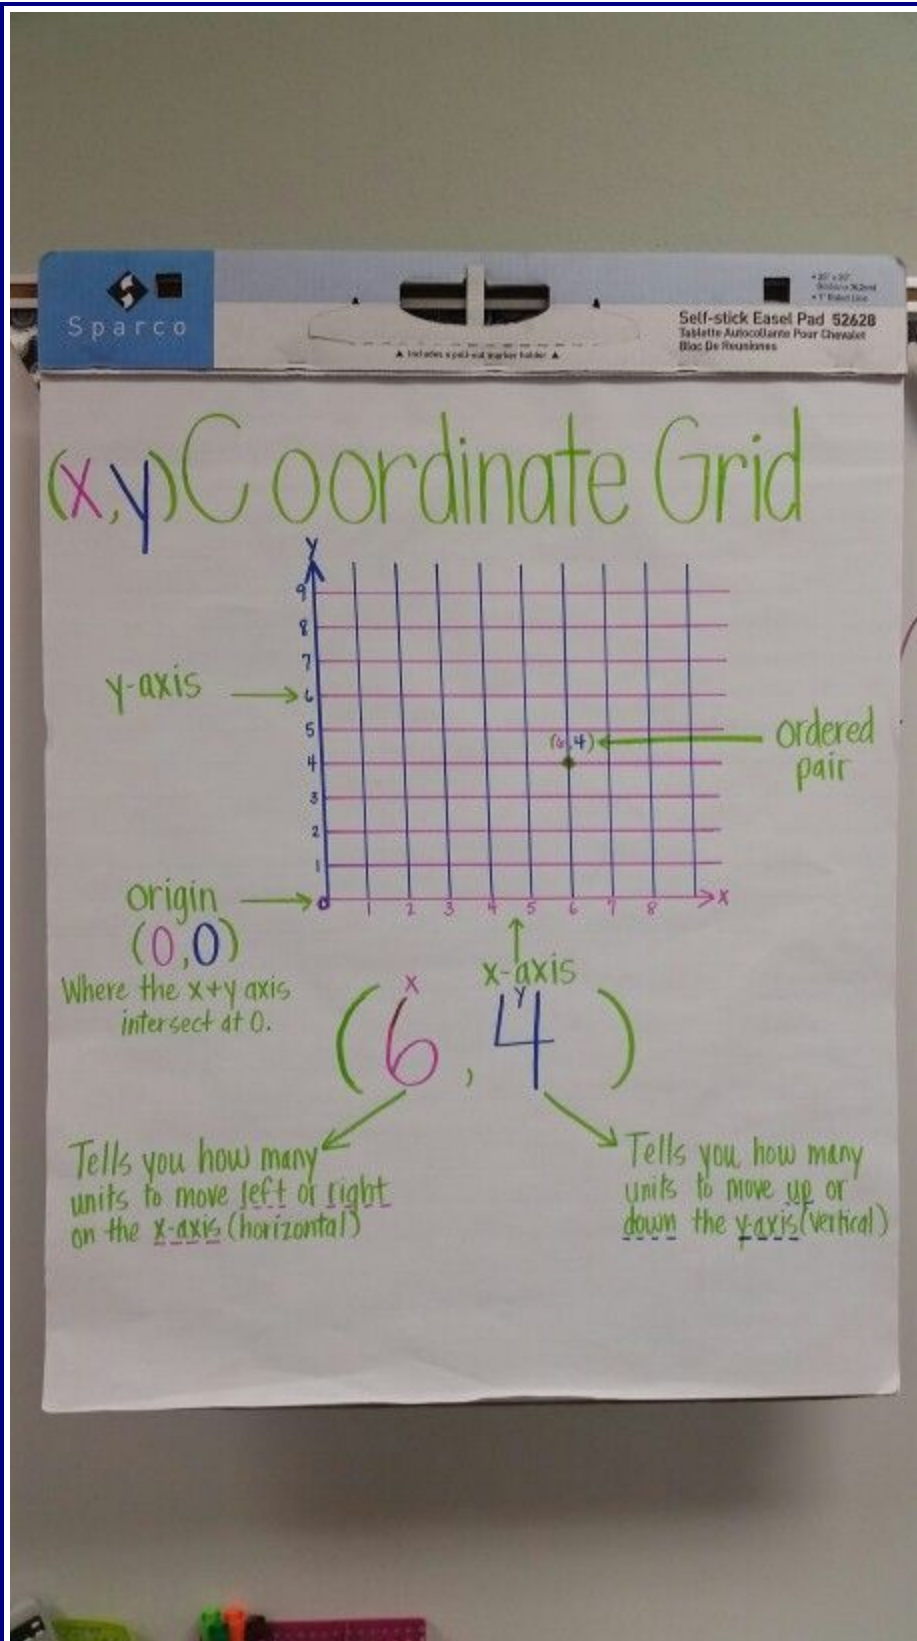 Sparco
Includes a pull-out marker holder
Self-stick Easel Pad 52628
Tablette Autocollante Pour Chevalet
Bloc De Reuniones
(x,y) Coordinate Grid
y
9
8
7
y-axis
6
5
(6,4)
ordered
pair
4
3
2
1
origin
0
1 2 3 4 5 6 7 8
x
(0,0)
x-axis
Where the x+y axis
intersect at 0.
x y
(6,4)
Tells you how many
units to move left or right
on the x-axis (horizontal)
Tells you how many
units to move up or
down the y-axis (vertical)